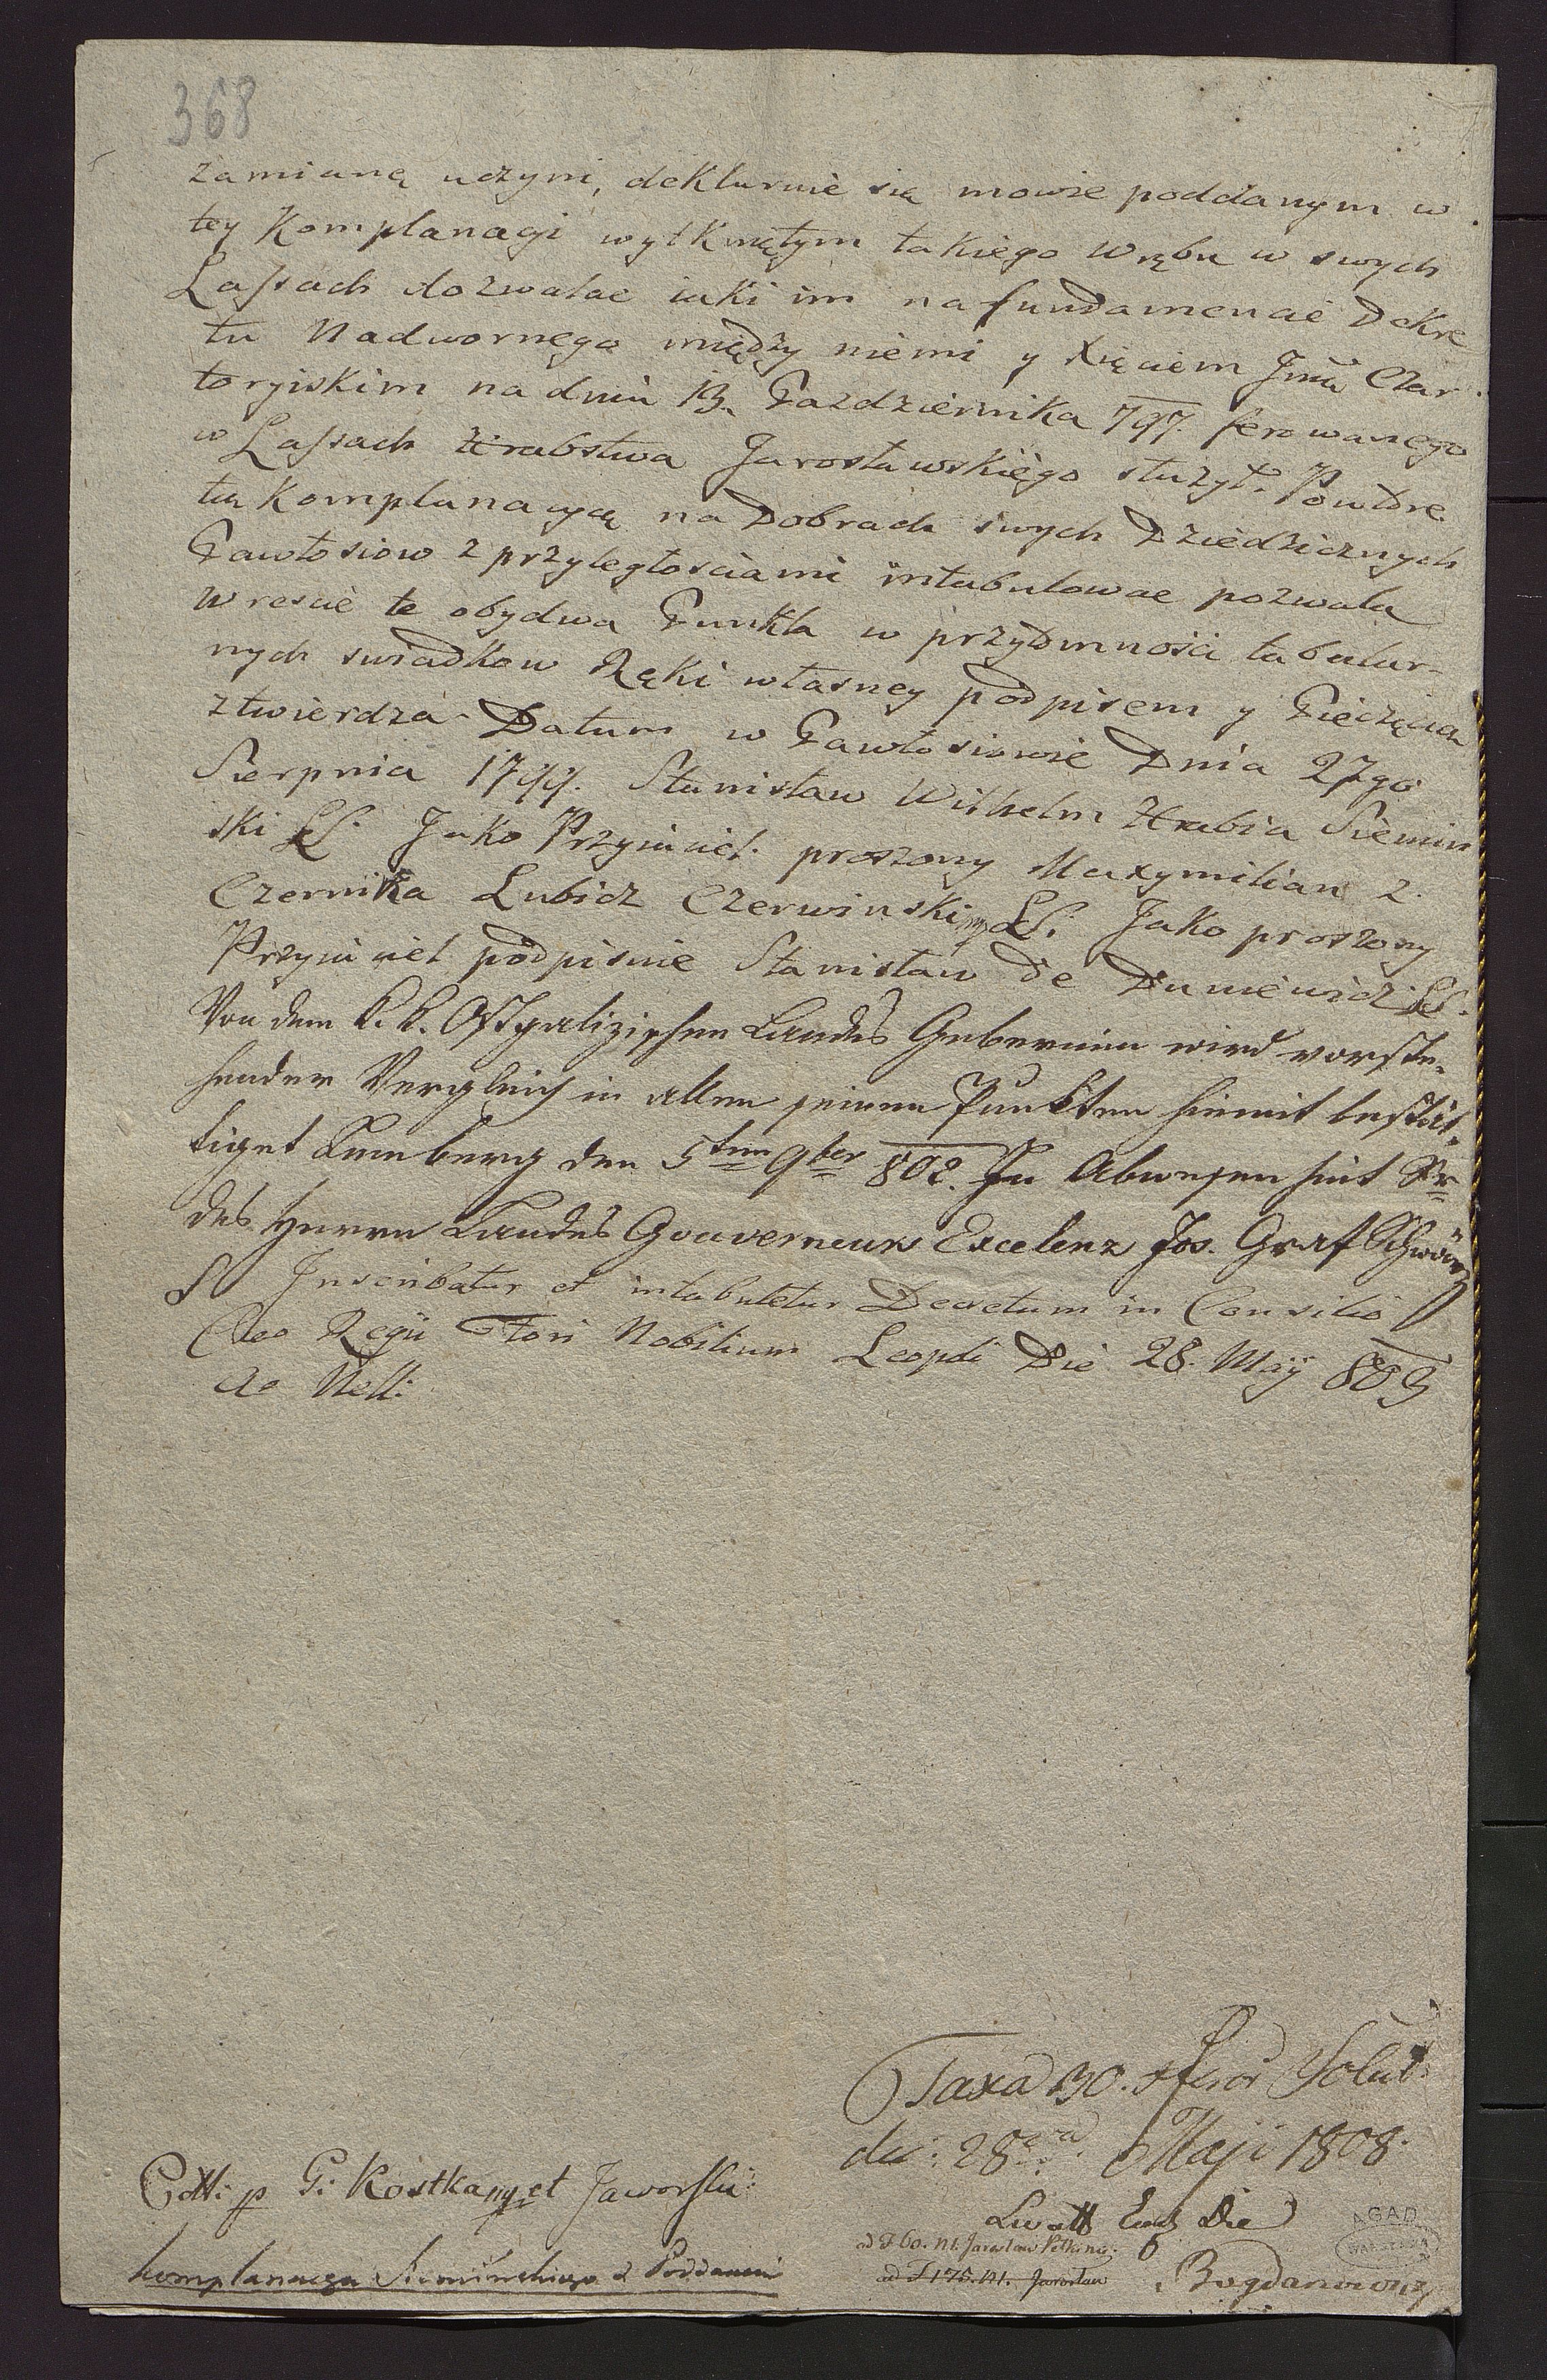 368
zamianą uczyni, deklaruie się mowie poddanym w
tey Komplanacyi wytkniętym takiego Wrębu w swych
Lassach dozwalac iaki im na fundamencie Dekre
tu Nadwornego między niemi y Xięciem Jmu Czar
toryiskim na dniu 13. Pazdziernika 797. ferowanego
w Lassach Hrabstwa Jarosławskiego służył. Powtore
tę Komplanacyą na Dobrach swych Dziedzicznych
Pawłosiow z przyległosciami intabulowac pozwala
Wrescie te obydwa Punkta w przytomności tabular-
nych swiadkow Ręki własney podpisem y Pieczęcią
ztwierdza Datum w Pawłosiowie Dnia 27go
Sierpnia 1799. Stanisław Wilhelm Hrabia Siemin
ski LS. Jako Przyiaciel proszony Maxymilian z
Czernika Lubicz Czerwinski LS. Jako proszony
Przyiaciel podpisuie Stanisław de Duniewicz LS.
Von dem k. k. Ostgalizischen Landes Gubernium wird vorste-
hender Vergleich in allen seinen Punkten hiemit bestät-
tiget Lemberg den 5ten 9ber 802. In Abwesenheit Sr
des Herrn Landes Gouverneurs Excelenz Jos. Graf
Inscribatur et intabuletur Decretum in Consilio
Cæo Regii Fori Nobilium Leopoli Die 28. Maji 803
Taxa 30. Solut
die 28va Maji 1808.
P. Kostka et Jaworski
ad F 60. N1. Jarosław Pełkinie
ad F 175. N1. Jarosław
Bogdanowicz
komplanacya Siemińskiego z Poddanemi
AGAD
WARSZAWA